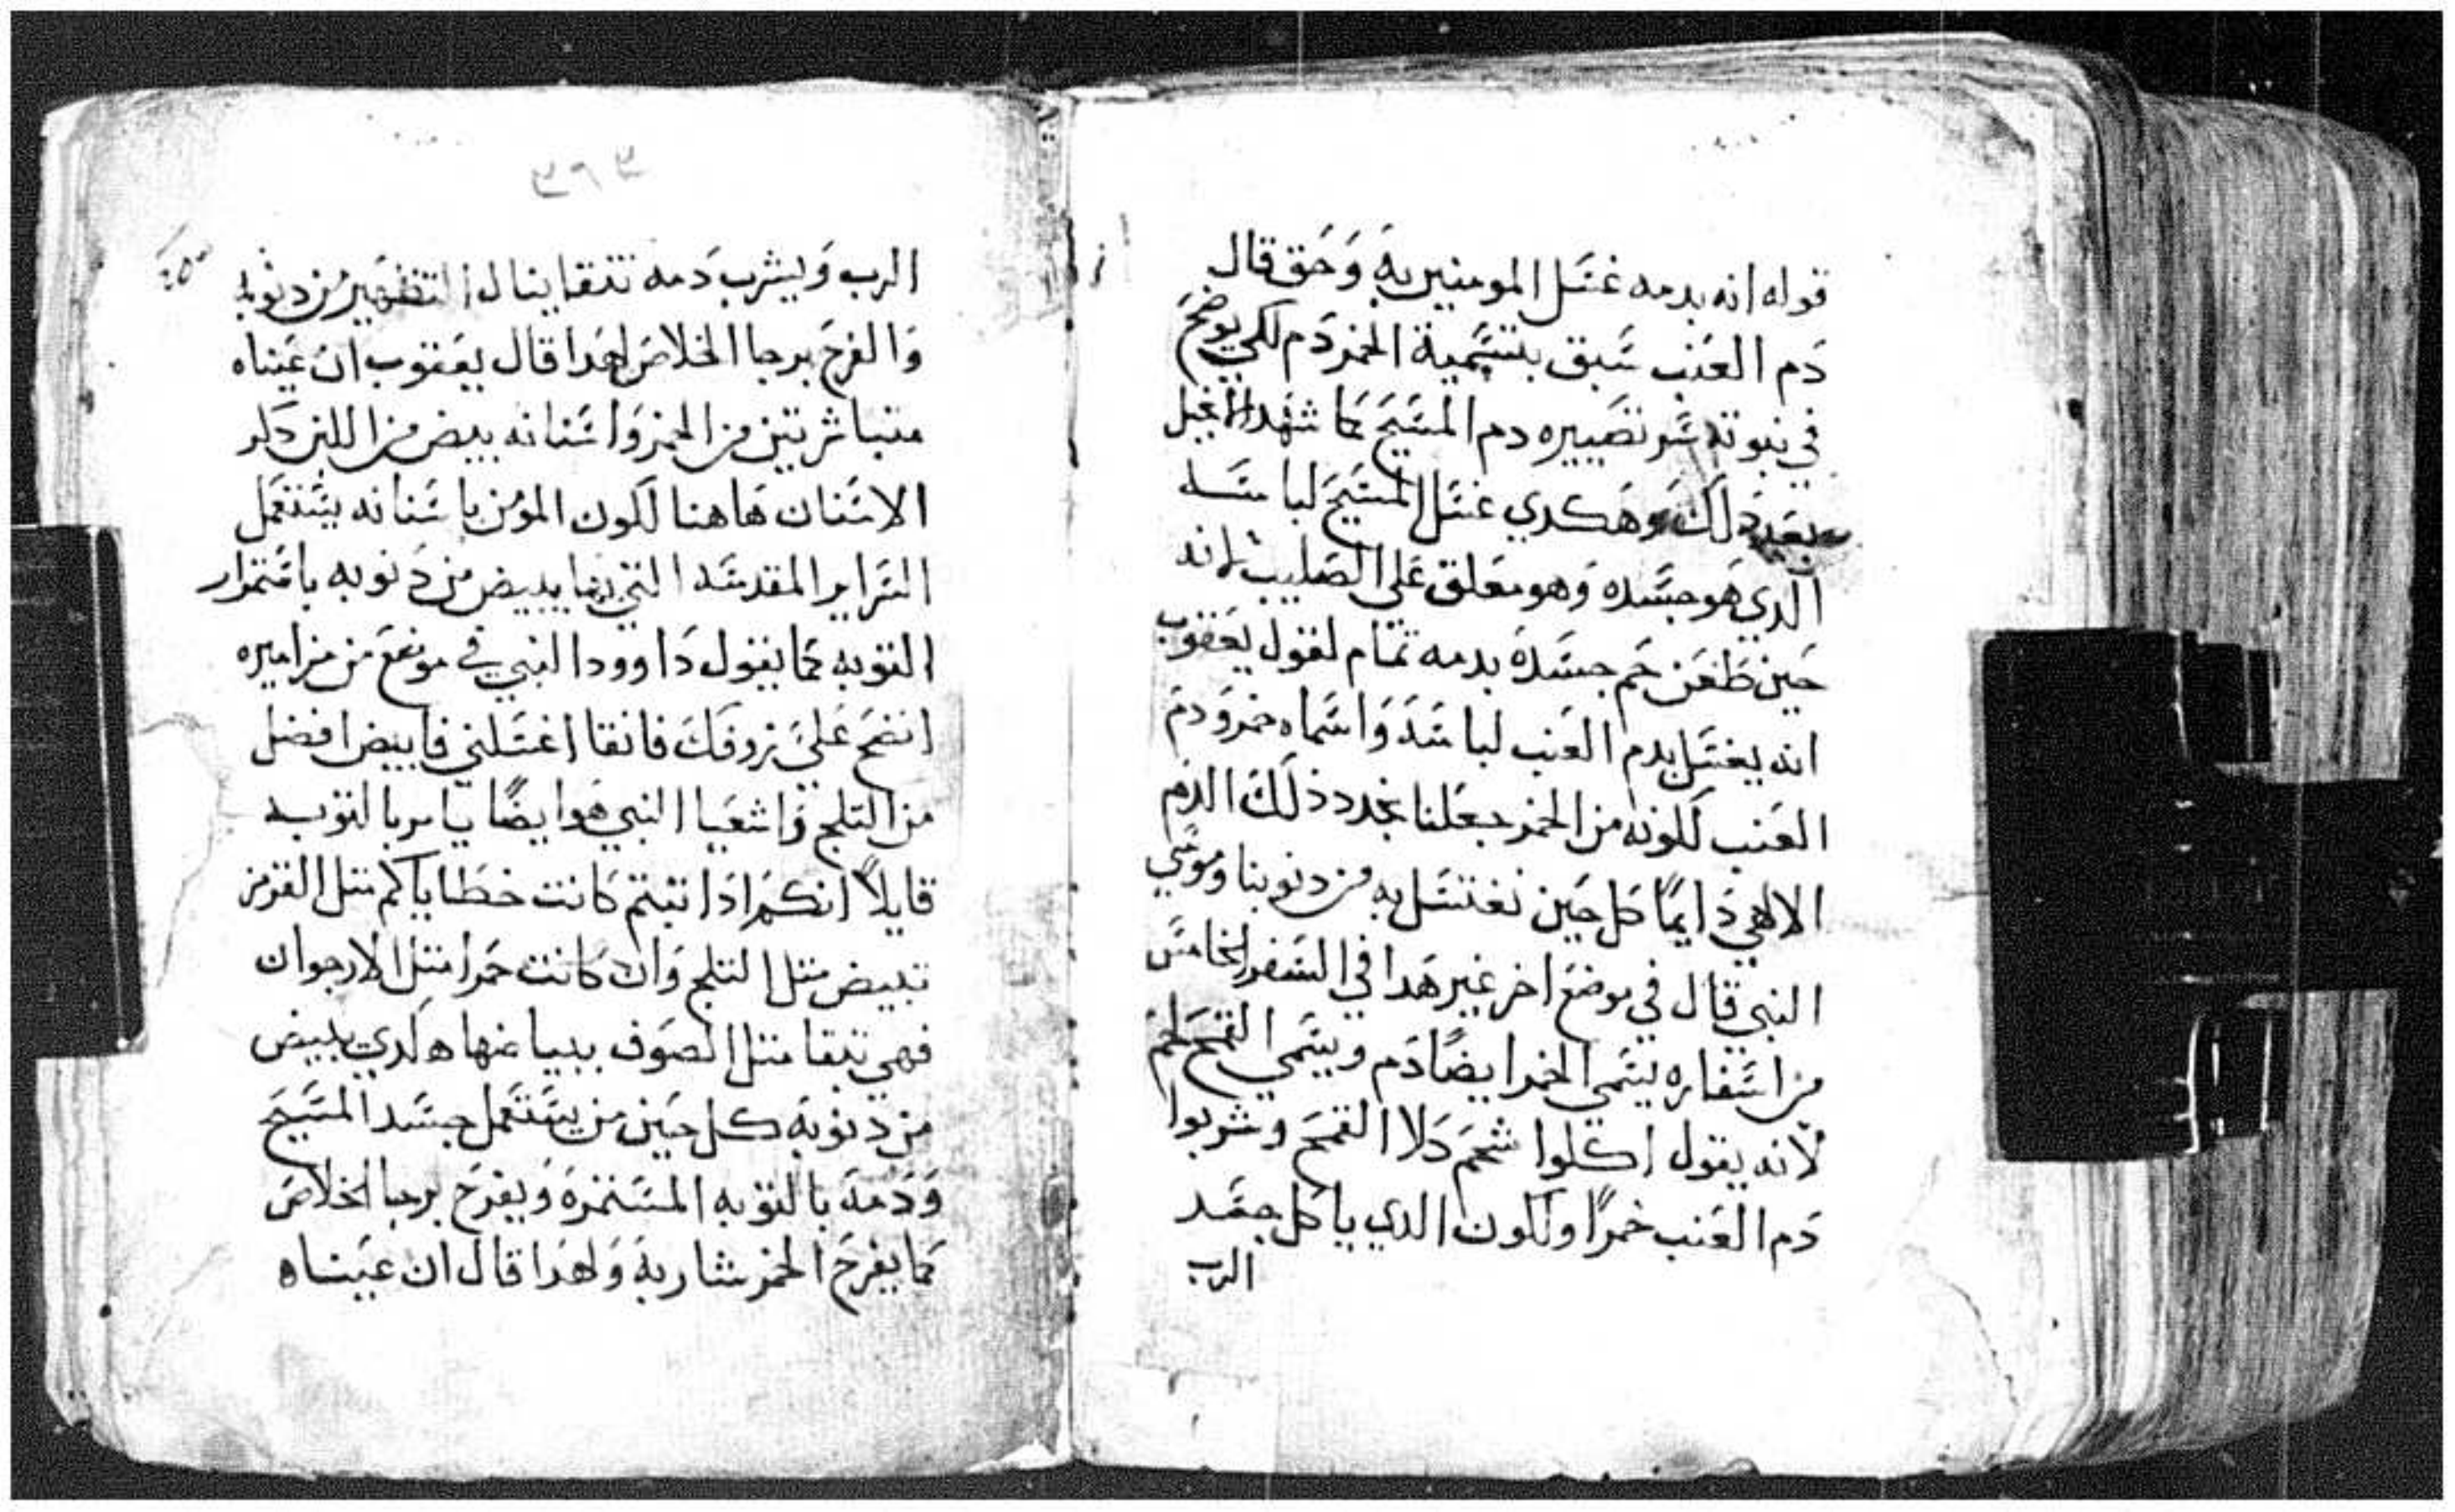 قوله انه بدمه غسل المومنين به وحق قال
دم العنب سبق بتسمية الخمر دم لكي يوضح
في نبوته سر تصييره دم المسيح كما شهد الانجيل
بعد ذلك وهكدي غسل المسيح لباسه
الدي هو جسده وهو معلق علي الصليب لانه
حين طعن حم جسده بدمه تمام لقول يعقوب
انه يغسل بدم العنب لباسه واسماه خمر ودم
العنب لكونه من الخمر جعلنا نجدد ذلك الدم
الالهي دايمًا كل حين نغتسل به من دنوبنا وموسي
النبي قال في موضع اخر غير هدا في السفر الخامس
من اسفاره يسمي الخمر ايضًا دم ويسمي القمح لحم
لانه يقول اكلوا شحم كلا القمح وشربوا
دم العنب خمرًا ولكون الدي ياكل جسد
الرب
٣٩٣
الرب ويشرب دمه تنقا ينال التطهير من دنوبه
والفرح برجا الخلاص لهدا قال يعقوب ان عيناه
متباشرتين من الخمر واسنانه بيض من اللبن دكر
الاسنان هاهنا لكون المؤمن باسنانه يستعمل
السراير المقدسه التي بها يبيض من دنوبه باستمرار
التوبه كما يقول داوود النبي في موضع من مزاميره
انضح علي بزوفك فانقا اغسلني فابيض افضل
من التلج واشعيا النبي هو ايضًا يامر بالتوبه
قايلًا انكم ادا تبتم كانت خطاياكم متل القرمز
تبيض متل التلج وان كانت حمرا متل الارجوان
فهي تنقا متل الصوف ببياضها هكدي يبيض
من دنوبه كل حين من يستعمل جسد المسيح
ودمه بالتوبه المستمره ويفرح برجا الخلاص
كما يفرح الخمر شاربه ولهدا قال ان عيناه